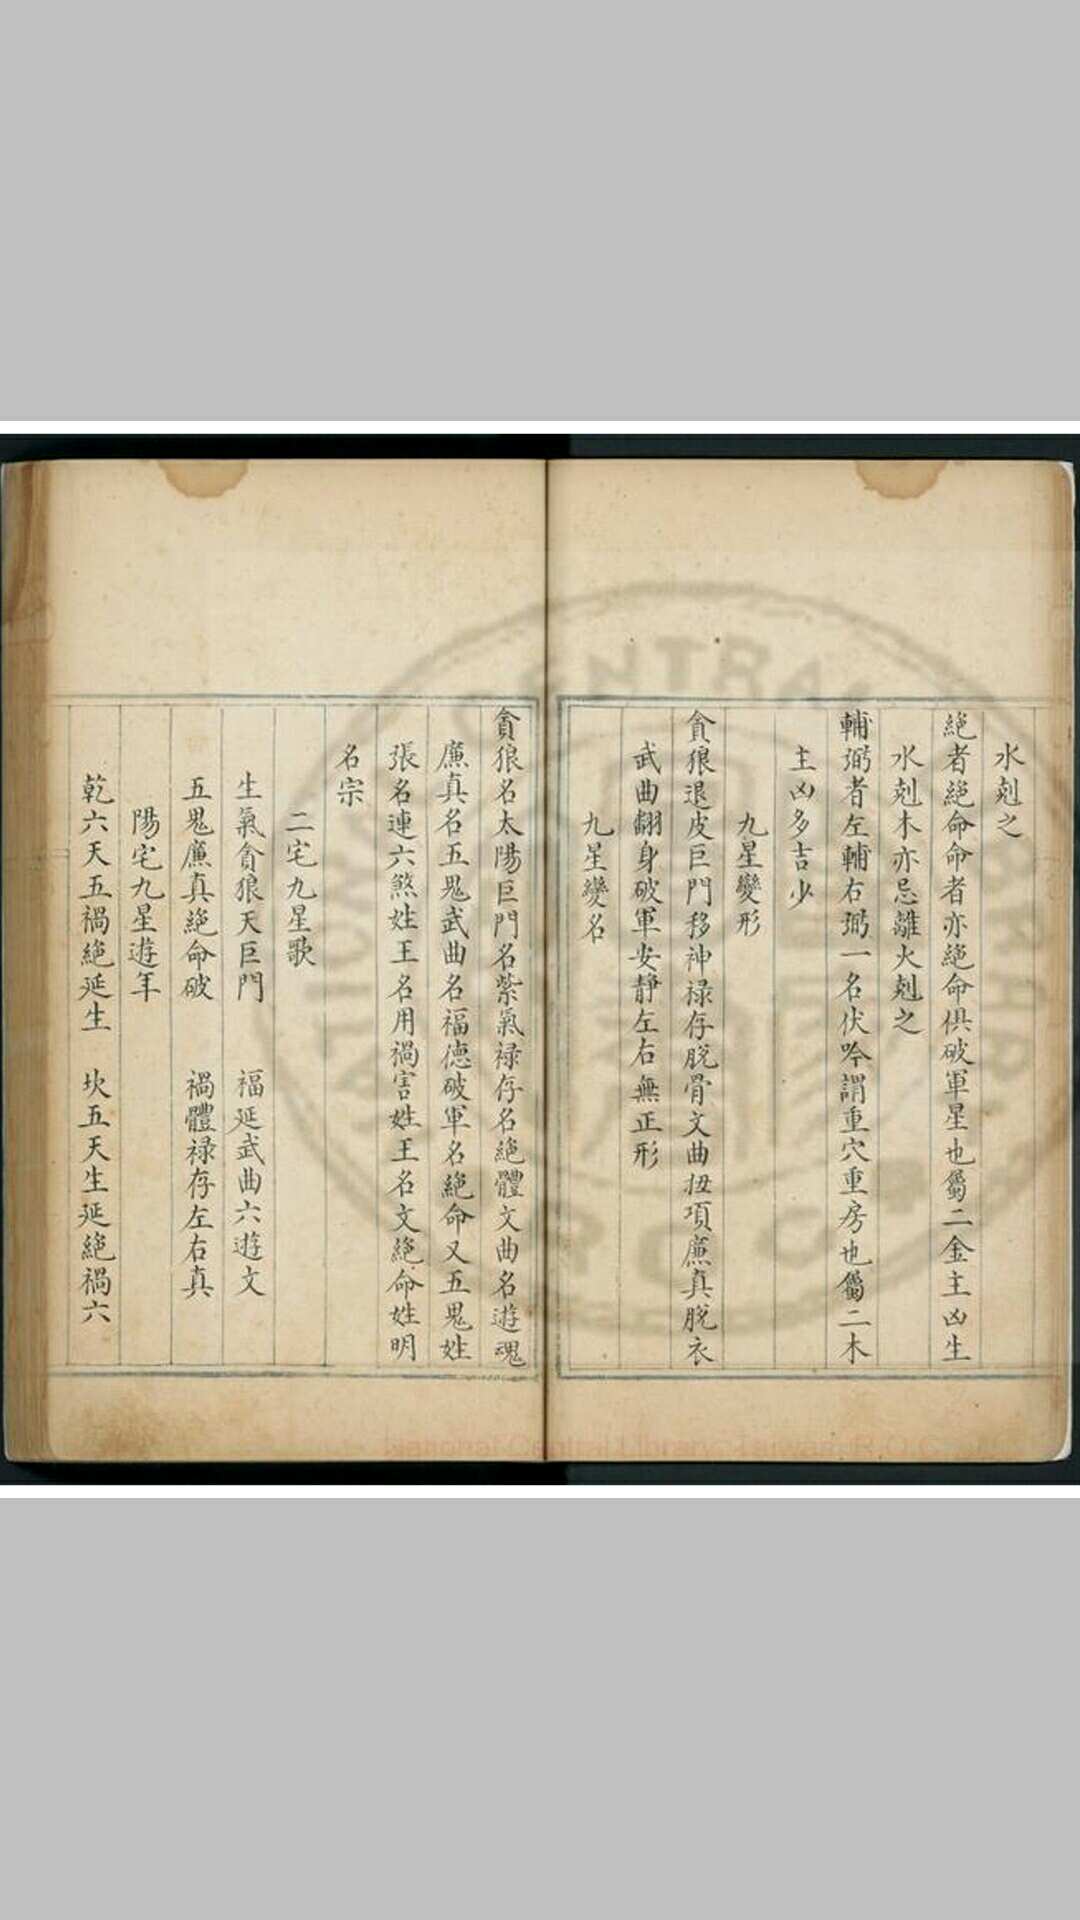 水剋之
絕者絕命命者亦絕命俱破軍星也屬二金主凶生
水剋木亦忌離火剋之
輔弼者左輔右弼一名伏吟謂重穴重房也屬二木
主凶多吉少
九星變形
貪狼退皮巨門移神禄存脫骨文曲扭項廉真脫衣
武曲翻身破軍安靜左右無正形
九星變名
貪狼名太陽巨門名紫氣禄存名絕體文曲名遊魂
廉真名五鬼武曲名福德破軍名絕命又五鬼姓
張名連六煞姓王名用禍害姓王名文絕命姓明
名宗
二宅九星歌
生氣貪狼天巨門 福延武曲六遊文
五鬼廉真絕命破 禍體禄存左右真
陽宅九星遊年
乾六天五禍絕延生 坎五天生延絕禍六
National Central Library, Taiwan, R.O.C.